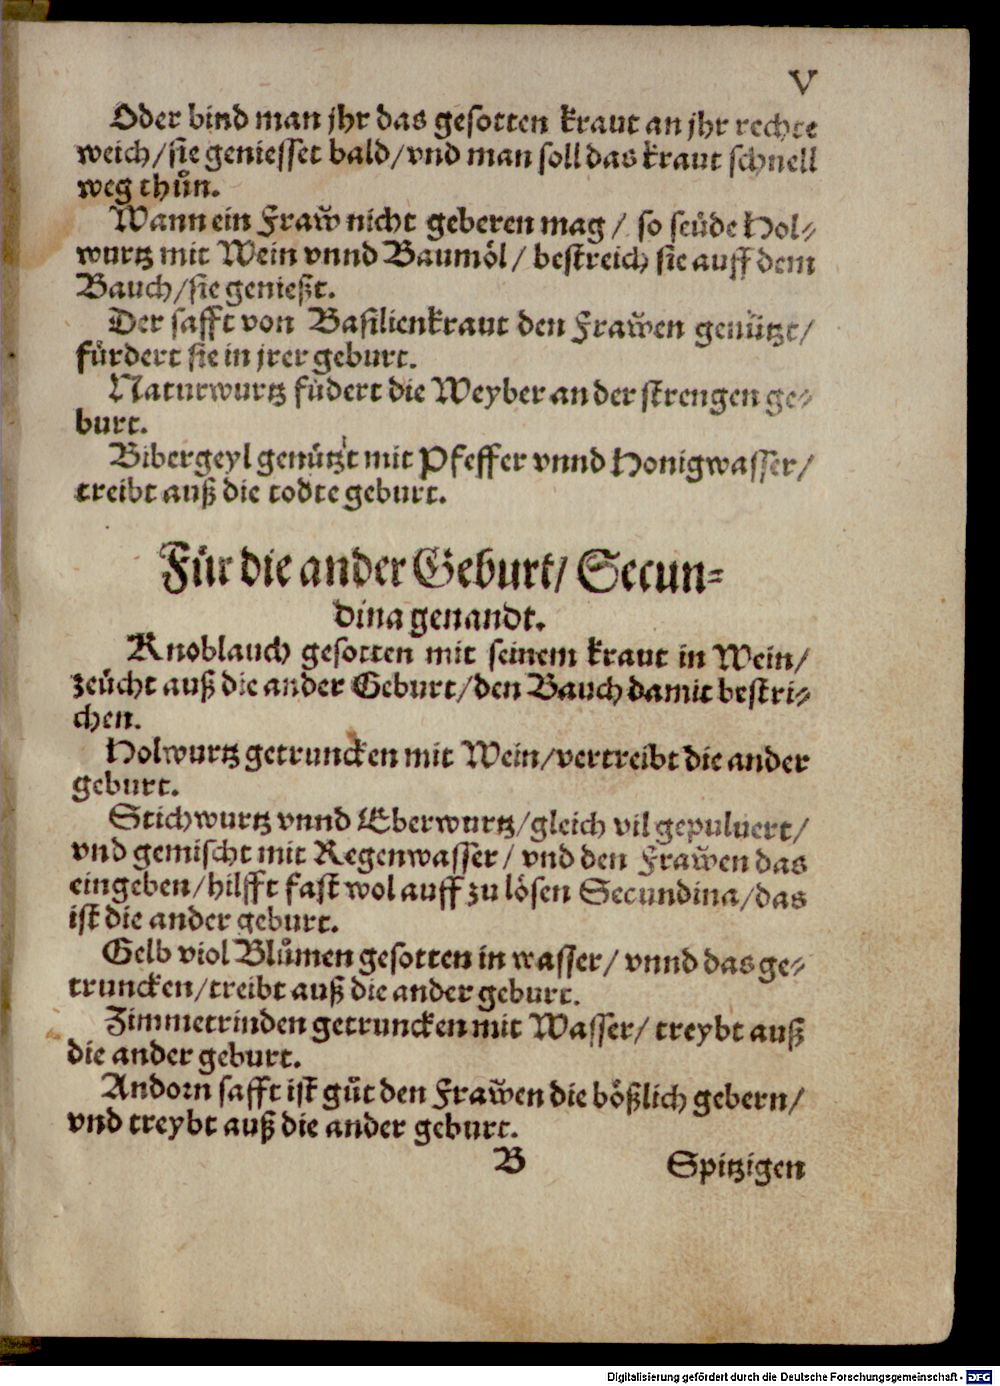 V
Oder bind man jhr das gesotten kraut an jhr rechte
weich/ sie geniesset bald/ vnd man soll das kraut schnell
weg thůn.
Wann ein Fraw̃ nicht geberen mag/ so seüde Hol⸗
wurtz mit Wein vnnd Baumöl/ bestreich sie auff dem
Bauch/ sie genießt.
Der safft von Basilienkraut den Fraw̃en genützt/
fürdert sie in jrer geburt.
Naturwurtz füdert die Weyber an der strengen ge⸗
burt.
Bibergeyl genützt mit Pfeffer vnnd Honigwasser/
treibt auß die todte geburt.
Für die ander Geburt/ Secun⸗
dina genandt.
Knoblauch gesotten mit seinem kraut in Wein/
zeücht auß die ander Geburt/ den Bauch damit bestri⸗
chen.
Holwurtz getruncken mit Wein/ vertreibt die ander
geburt.
Stichwurtz vnnd Eberwurtz/ gleich vil gepuluert/
vnd gemischt mit Regenwasser/ vnd den Fraw̃en das
eingeben/ hilfft fast wol auff zu lösen Secundina/ das
ist die ander geburt.
Gelb viol Blůmen gesotten in wasser/ vnnd das ge⸗
truncken/ treibt auß die ander geburt.
Zimmetrinden getruncken mit Wasser/ treybt auß
die ander geburt.
Andorn safft ist gůt den Fraw̃en die bößlich gebern/
vnd treybt auß die ander geburt.
B
Spitzigen
Digitalisierung gefördert durch die Deutsche Forschungsgemeinschaft - DFG